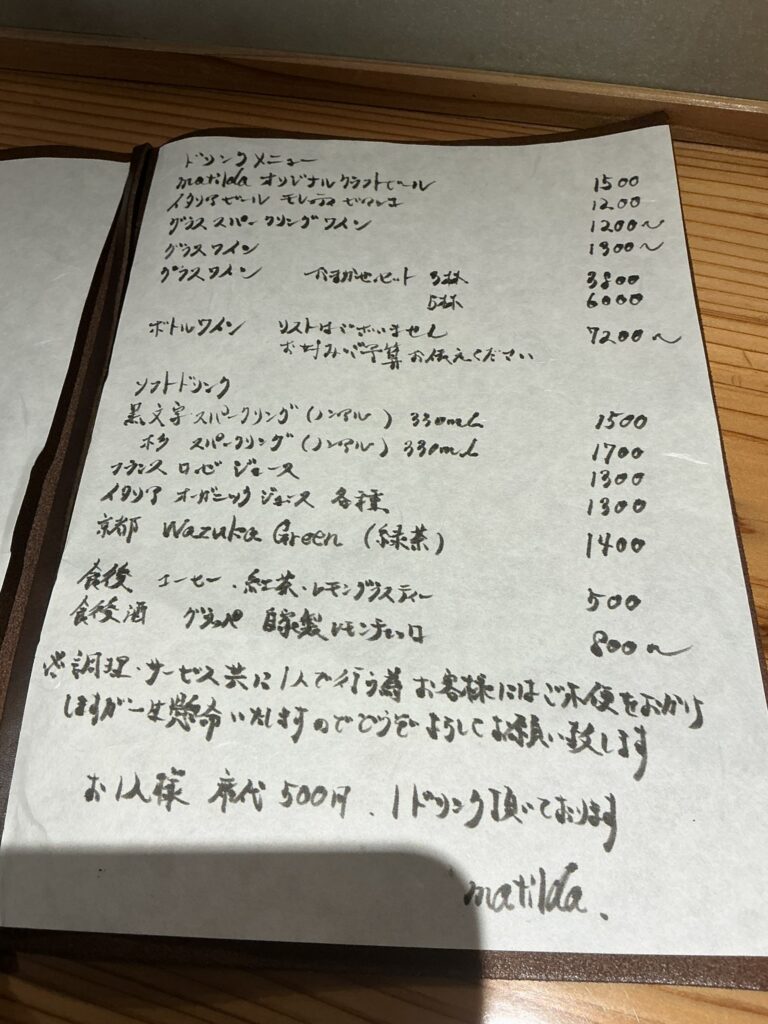 ドリンクメニュー
matilda オリジナルクラフトビール 1500
イタリアビール モレッティ ビアンコ 1200
グラス スパークリングワイン 1200〜
グラスワイン 1300〜
グラスワイン おまかせセット 3杯 3800
5杯 6000
ボトルワイン リストはございません 7200〜
お好みご予算お伝えください
ソフトドリンク
黒文字スパークリング(ノンアル) 330mL 1500
杉 スパークリング(ノンアル) 330mL 1700
フランス ロゼ ジュース 1300
イタリア オーガニックジュース 各種 1300
京都 Wazuka Green (緑茶) 1400
食後 コーヒー・紅茶・レモングラスティー 500
食後酒 グラッパ 自家製レモンチェッロ 800〜
※調理・サービス共に1人で行う為お客様にはご不便をおかけ
しますが一生懸命いたしますのでどうぞよろしくお願い致します
お1人様 席代500円、1ドリンク頂いております
matilda.